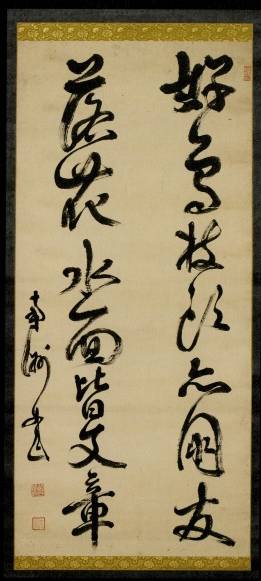 好鳥枝頭亦朋友
落花水面皆文章
南洲書